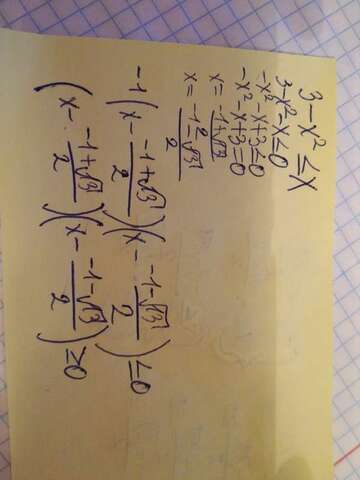 3 - x² ≤ x
3 - x² - x ≤ 0
-x² - x + 3 ≤ 0
-x² - x + 3 = 0
x = (-1 + √13) / 2
x = (-1 - √13) / 2
-1 (x - (-1 + √13) / 2) (x - (-1 - √13) / 2) ≤ 0
(x - (-1 + √13) / 2) (x - (-1 - √13) / 2) ≥ 0